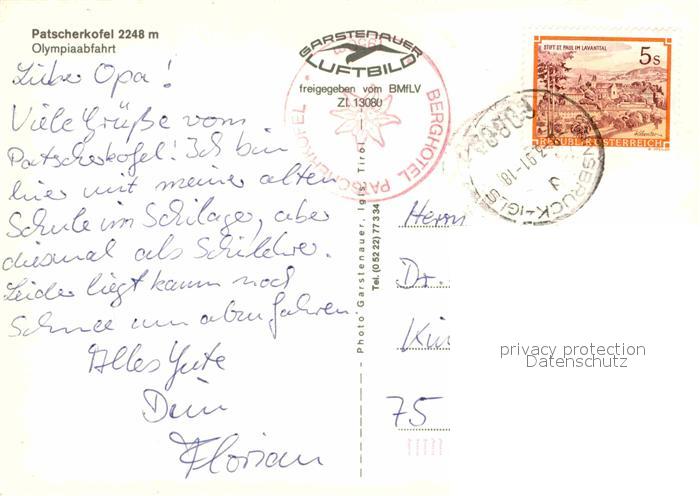 Patscherkofel 2248 m
Olympiaabfahrt
Lieber Opa!
Viele Grüße vom
Patscherkofel! Ich bin
hier mit meiner alten
Schule im Schilager, aber
diesmal als Schilehrer.
Leider liegt kaum noch
Schnee um abzufahren.
Alles Gute
Dein
Florian
GARSTENAUER
LUFTBILD
freigegeben vom BMfLV
Zl. 13080
BERGHOTEL PATSCHERKOFEL
Photo Garstenauer, Igls, Tirol
Tel. (0 52 22) 77 3 34
STIFT ST. PAUL IM LAVANTTAL
5s
REPUBLIK ÖSTERREICH
INNSBRUCK-IGLS
Herrn
Dr.
75
privacy protection
Datenschutz